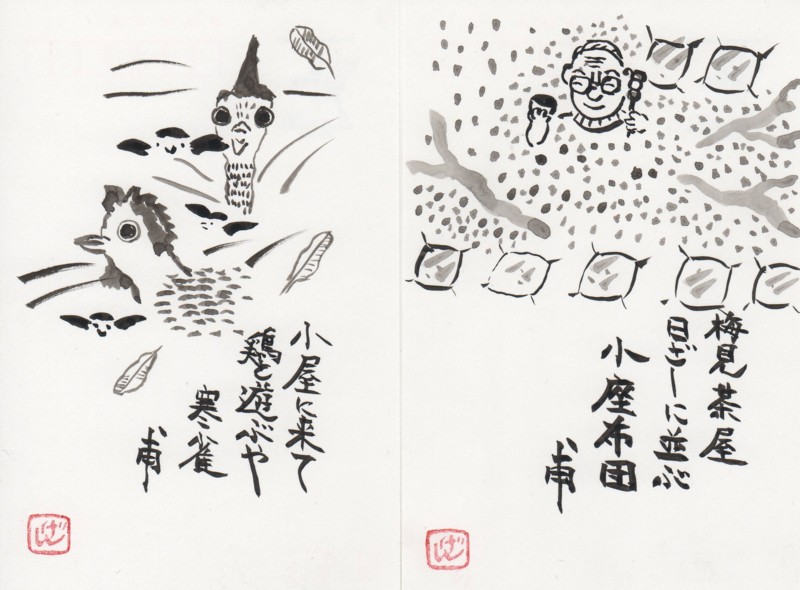 梅見茶屋
日ざしに並ぶ
小座布団
小屋に来て
鶏と遊ぶや
寒雀